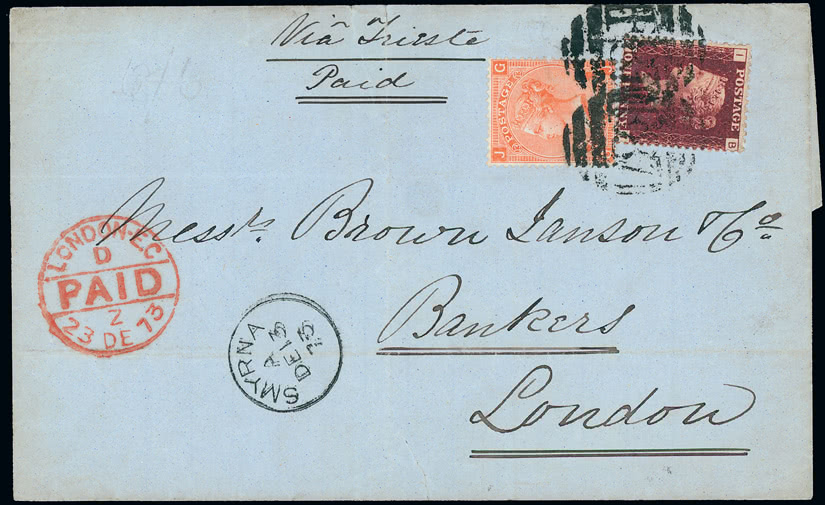 Viâ Trieste
Paid
Messrs. Brown Janson & Co.
Bankers
London
LONDON·EC
D
PAID
Z
23 DE 73
SMYRNA
A
DE 13
73
J G
POSTAGE
I
POSTAGE
B